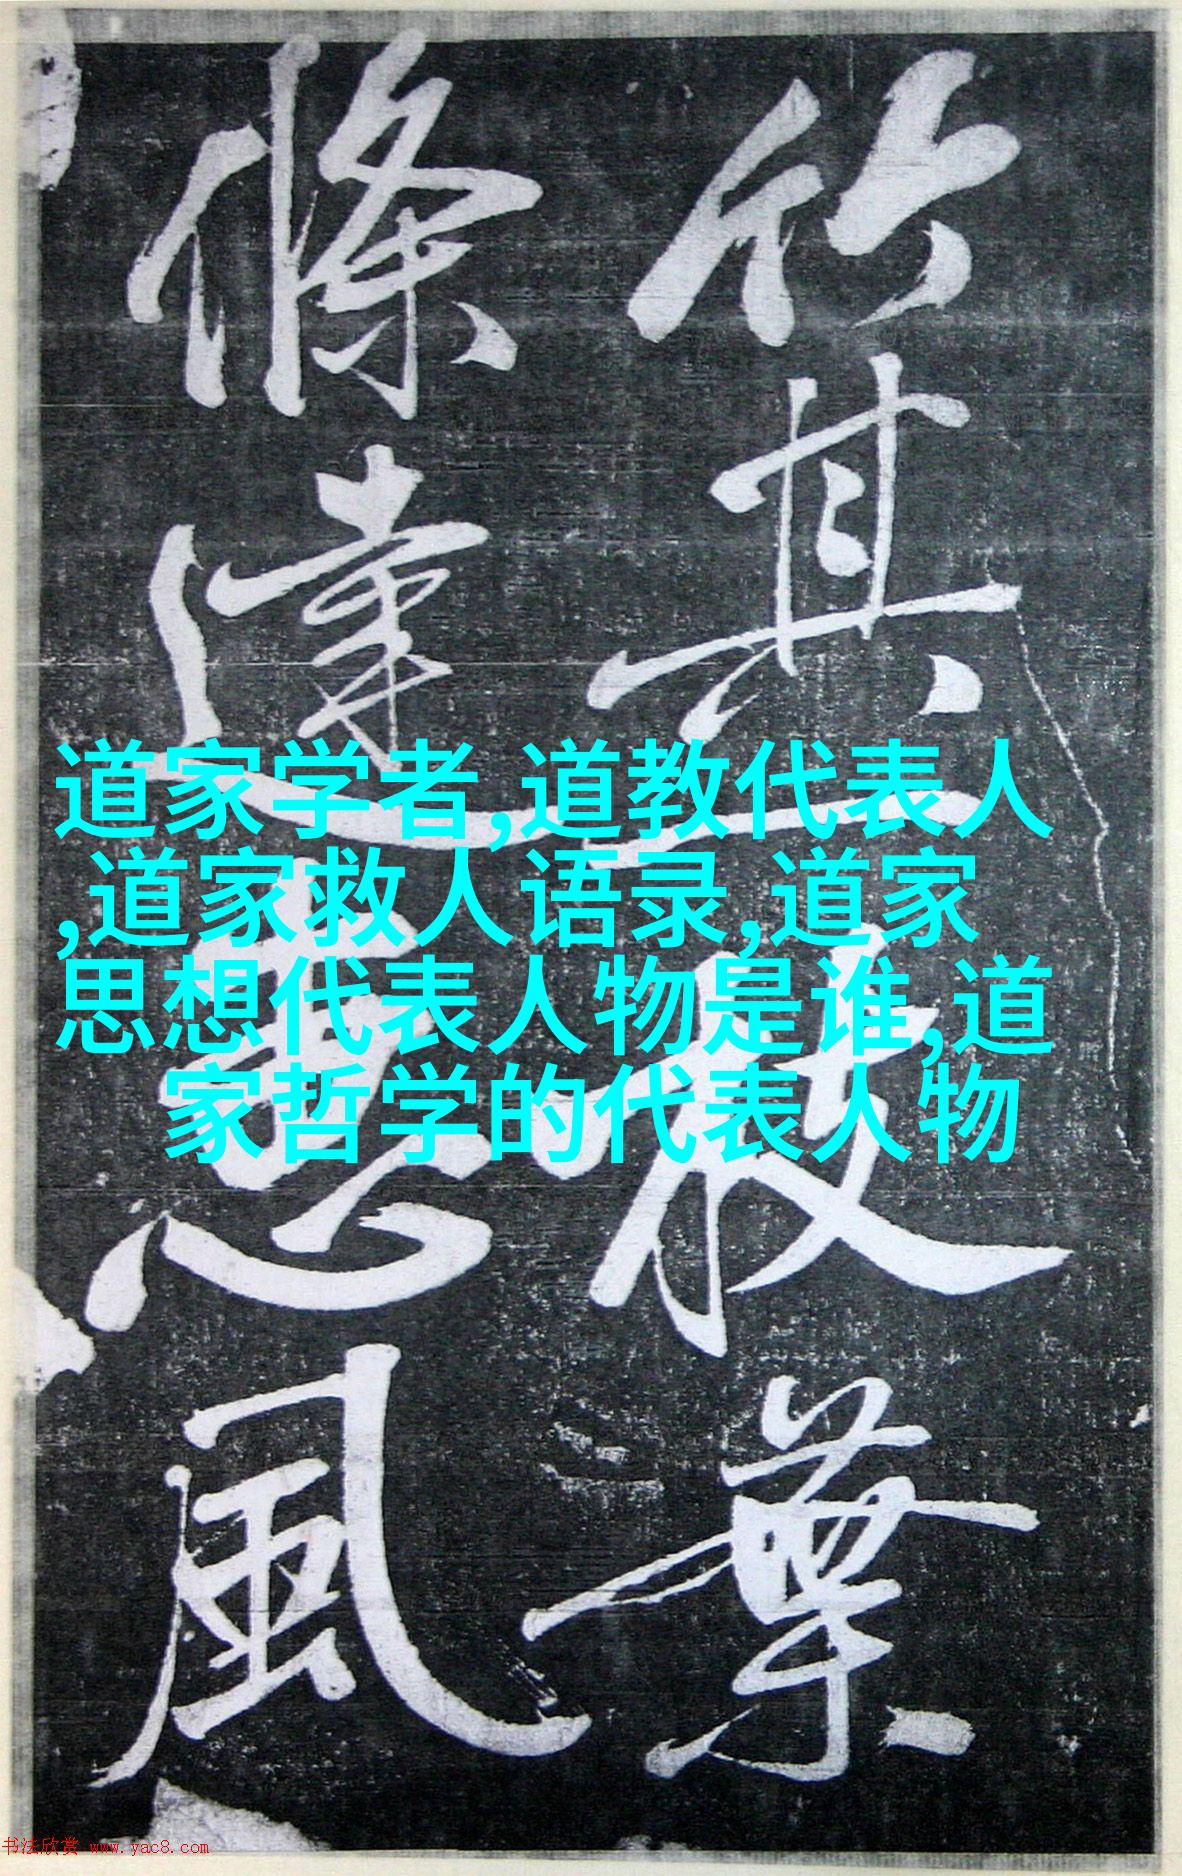 竹其枝葉
條達惠風
道家学者,道教代表人
,道家救人语录,道家
思想代表人物是谁,道
家哲学的代表人物
书法欣赏 www.yac8.com